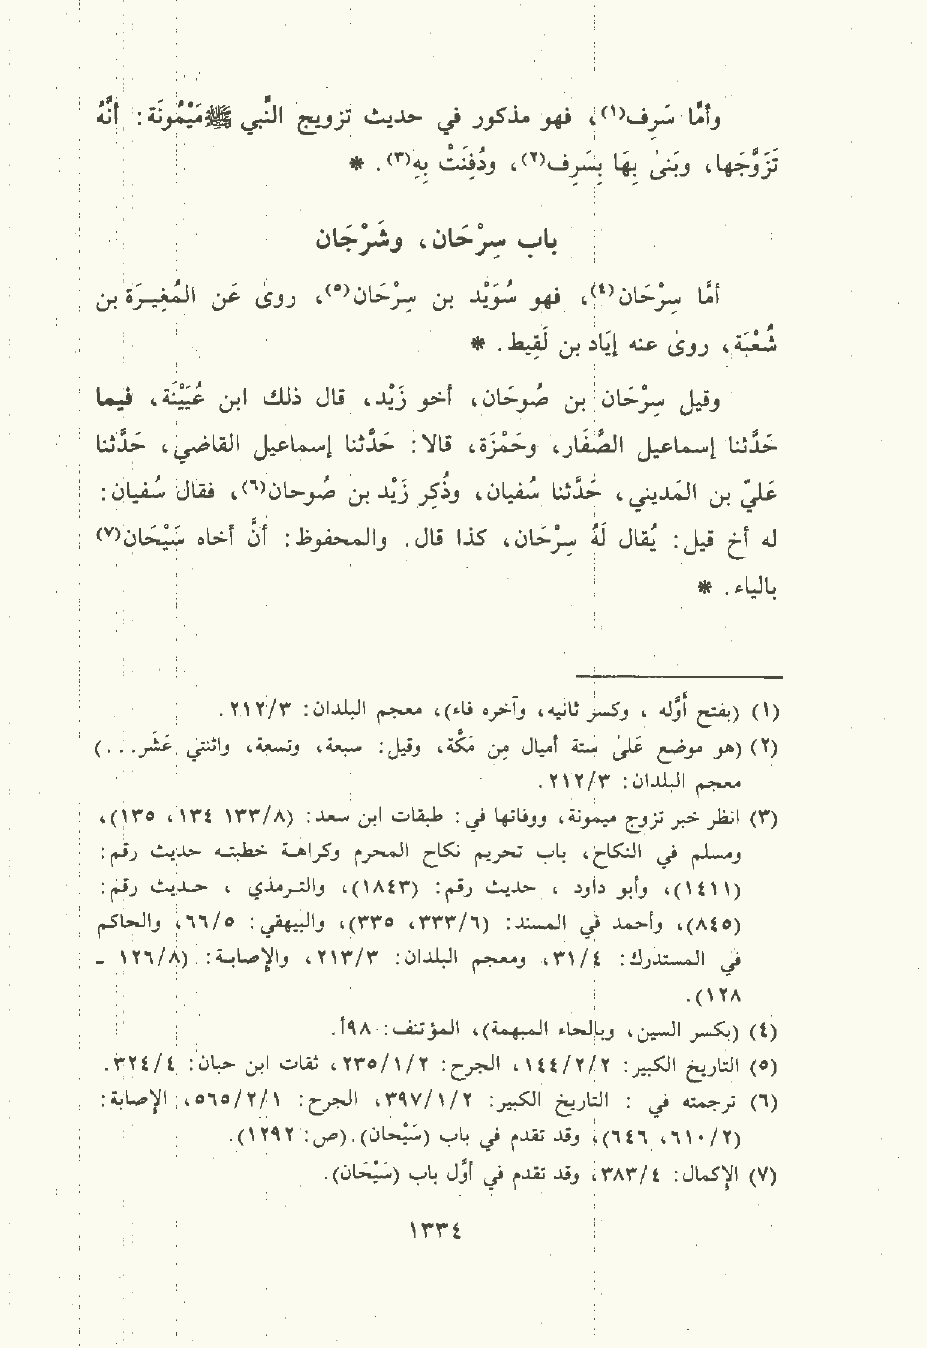 وأمَّا سَرِف(١)، فهو مذكور في حديث تزويج النَّبي ﷺ مَيْمُونَة: أنَّهُ
تَزَوَّجَها، وبَنىٰ بِهَا بِسَرِف(٢)، ودُفِنَتْ بِهِ(٣). *
باب سِرْحَان، وشَرْجَان
أمَّا سِرْحَان(٤)، فهو سُوَيْد بن سِرْحَان(٥)، روىٰ عَن المُغِيـرَة بن
شُعْبَة، روىٰ عنه إيَاد بن لَقِيط. *
وقيل سِرْحَان بن صُوحَان، أخو زَيْد، قال ذلك ابن عُيَيْنَة، فيما
حَدَّثنا إسماعيل الصُّفَار، وحَمْزَة، قالا: حَدَّثنا إسماعيل القاضي، حَدَّثنا
عَليّ بن المَديني، حَدَّثنا سُفيان، وذُكِر زَيْد بن صُوحان(٦)، فقال سُفيان:
له أخ قيل: يُقال لَهُ سِرْحَان، كذا قال. والمحفوظ: أنَّ أخاه سَيْحَان(٧)
بالياء. *
(١) (بفتح أوَّله ، وكسر ثانيه، وآخره فاء)، معجم البلدان: ٢١٢/٣.
(٢) (وهو موضع عَلىٰ ستة أميال مِن مَكَّة، وقيل: سبعة، وتسعة، واثنتي عَشَر...)
معجم البلدان: ٢١٢/٣.
(٣) انظر خبر تزوج ميمونة، ووفاتها في: طبقات ابن سعد: (١٣٣/٨ ١٣٤، ١٣٥)،
ومسلم في النكاح، باب تحريم نكاح المحرم وكراهـة خطبتـه حديث رقم:
(١٤١١)، وأبو داود ، حديث رقم: (١٨٤٣)، والترمذي ، حـديث رقم:
(٨٤٥)، وأحمد في المسند: (٣٣٣/٦، ٣٣٥)، والبيهقي: ٦٦/٥، والحاكم
في المستدرك: ٣١/٤، ومعجم البلدان: ٢١٣/٣، والإصابـة: (١٢٦/٨ ـ
١٢٨).
(٤) (بكسر السين، وبالحاء المهملة)، المؤتنف: ٩٨أ.
(٥) التاريخ الكبير: ١٤٤/٢/٢، الجرح: ٢٣٥/١/٢، ثقات ابن حبان: ٣٢٤/٤.
(٦) ترجمته في : التاريخ الكبير: ٣٩٧/١/٢، الجرح: ٥٦٥/٢/١، الإصابة:
(٦١٠/٢، ٦٤٦)، وقد تقدم في باب (سَيْحان).(ص: ١٢٩٢).
(٧) الإكمال: ٣٨٣/٤، وقد تقدم في أوَّل باب (سَيْحَان).
١٣٣٤